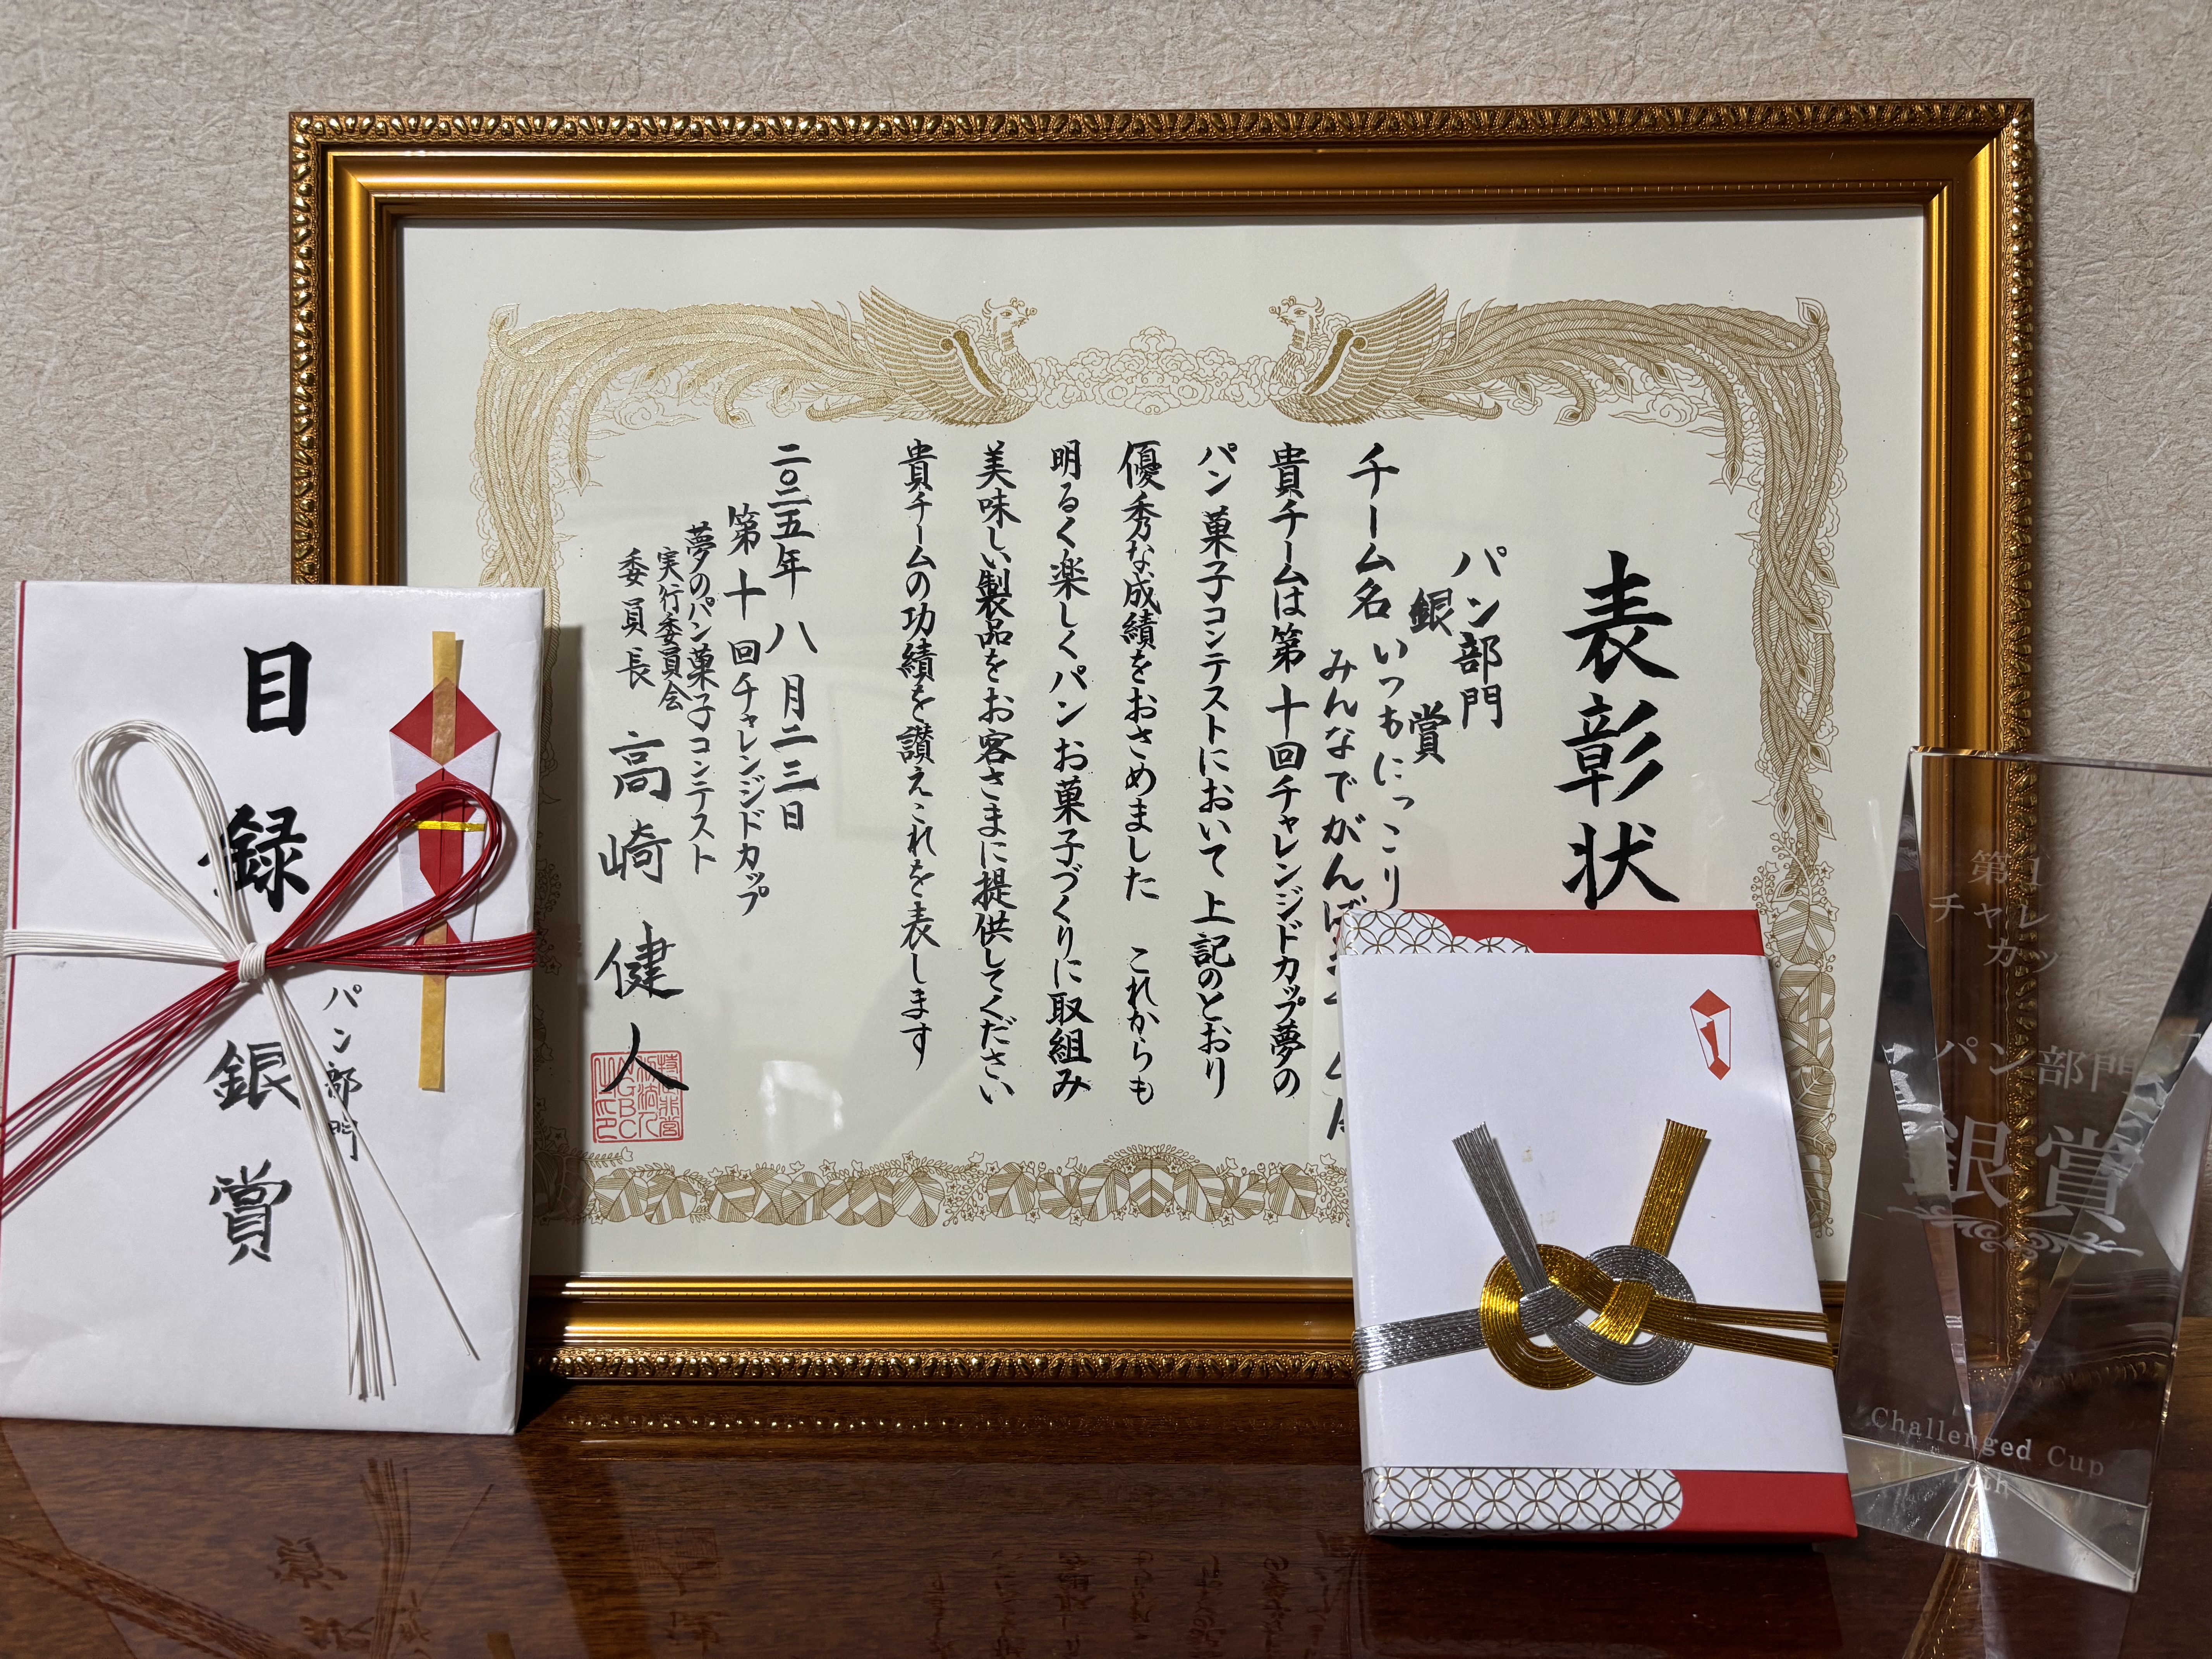 表彰状
パン部門
銀賞
チーム名 いつもにっこり
みんなでがんば
貴チームは第十回チャレンジドカップ夢の
パン菓子コンテストにおいて上記のとおり
優秀な成績をおさめました これからも
明るく楽しくパンお菓子づくりに取組み
美味しい製品をお客さまに提供してください
貴チームの功績を讃えこれを表します
二〇二五年八月二三日
第十回チャレンジドカップ
夢のパン菓子コンテスト
実行委員会
委員長 高崎健人
目録
パン部門
銀賞
第1
チャレ
カッ
パン部門
銀賞
Challenged Cup
10th